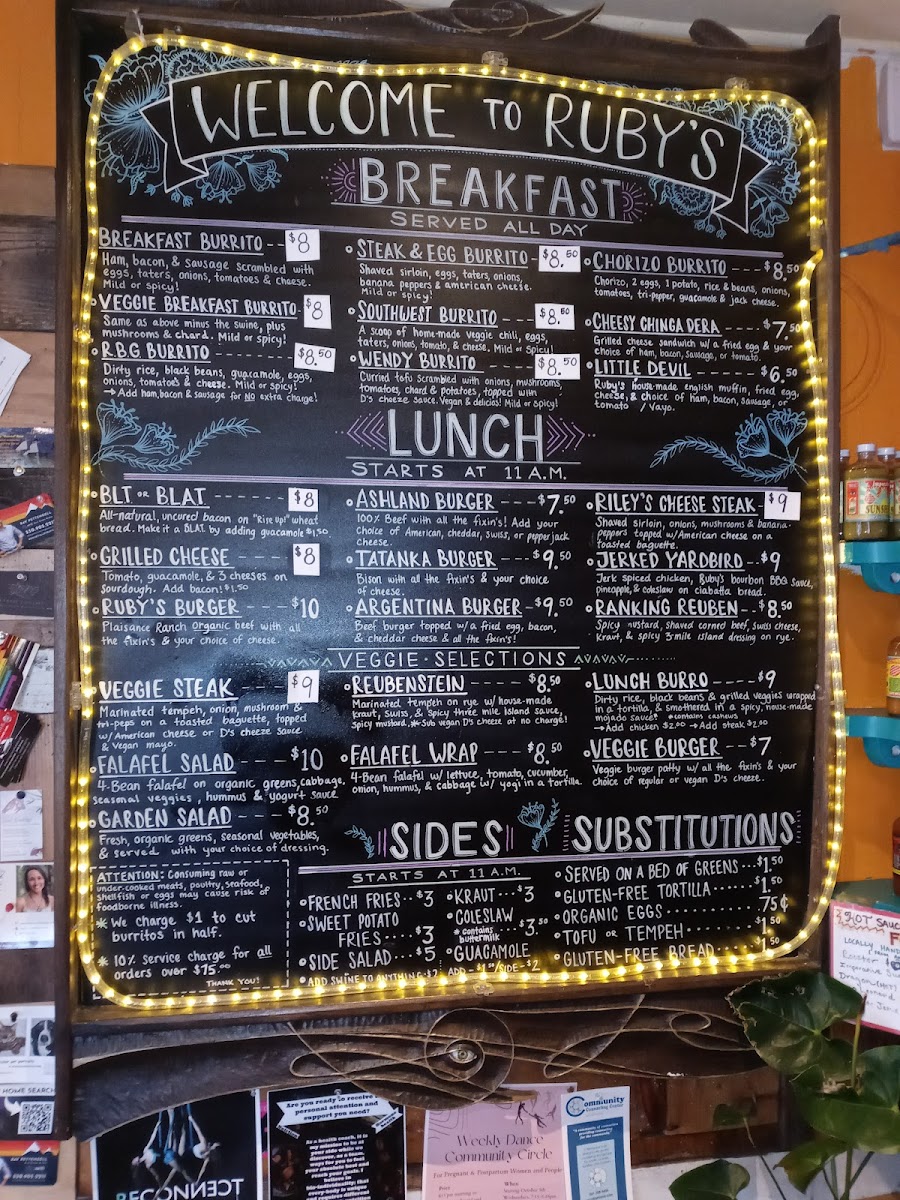 WELCOME TO RUBY'S
BREAKFAST
SERVED ALL DAY
BREAKFAST BURRITO -- $8
Ham, bacon, & sausage scrambled with
eggs, taters, onions, tomatoes & cheese.
Mild or spicy!
VEGGIE BREAKFAST BURRITO- $8
Same as above minus the swine, plus
mushrooms & chard. Mild or spicy!
R.B.G BURRITO ---- $8.50
Dirty rice, black beans, guacamole, eggs,
onions, tomatoes & cheese. Mild or spicy!
→ Add ham, bacon & sausage for NO extra charge!
STEAK & EGG BURRITO -- $8.50
Shaved sirloin, eggs, taters, onions,
banana peppers & american cheese.
Mild or spicy!
SOUTHWEST BURRITO ---- $8.50
A scoop of home-made veggie chili, eggs,
taters, onions, tomato, & cheese. Mild or Spicy!
WENDY BURRITO ---- $8.50
Curried tofu scrambled with onions, mushrooms,
tomatoes, chard & potatoes, topped with
D's cheeze sauce. Vegan & delicios! Mild or Spicy!
CHORIZO BURRITO --- $8.50
Chorizo, 2 eggs, 1 potato, rice & beans, onions,
tomatoes, tri-pepper, guacamole & jack cheese.
CHEESY CHINGADERA ---- $7.50
Grilled cheese sandwich w/ a fried egg & your
choice of ham, bacon, sausage, or tomato.
LITTLE DEVIL ---- $6.50
Ruby's house-made english muffin, fried egg,
cheese, & choice of ham, bacon, sausage, or
tomato / Vayo.
LUNCH
STARTS AT 11 A.M.
BLT OR BLAT ---- $8
All-natural, uncured bacon on "Rise Up!" wheat
bread. Make it a BLAT by adding guacamole $1.50
GRILLED CHEESE ---- $8
Tomato, guacamole, & 3 cheeses on
Sourdough. Add bacon! $1.50
RUBY'S BURGER ---- $10
Plaisance Ranch Organic beef with all
the fixin's & your choice of cheese.
ASHLAND BURGER --- $7.50
100% Beef with all the fixin's! Add your
choice of American, cheddar, swiss, or pepperjack
Cheese.
TATANKA BURGER --- $9.50
Bison with all the fixin's & your choice
of cheese.
ARGENTINA BURGER - $9.50
Beef burger topped w/a fried egg, bacon,
& cheddar cheese & all the fixin's!
RILEY'S CHEESE STEAK - $9
Shaved sirloin, onions, mushrooms & banana-
peppers topped w/American cheese on a
toasted baguette.
JERKED YARDBIRD -- $9
Jerk spiced chicken, Ruby's bourbon BBQ Sauce,
pineapple, & coleslaw on ciabatta bread.
RANKING REUBEN -- $8.50
Spicy mustard, shaved corned beef, swiss cheese,
kraut, & spicy 3 mile island dressing on rye.
VEGGIE-SELECTIONS
VEGGIE STEAK ---- $9
Marinated tempeh, onion, mushroom &
tri-peps on a toasted baguette, topped
w/American cheese or D's cheeze sauce
& Vegan mayo.
FALAFEL SALAD --- $10
4-Bean falafel on organic greens, cabbage,
seasonal veggies, hummus & yogurt sauce
GARDEN SALAD --- $8.50
Fresh, organic greens, seasonal vegetables,
& served with your choice of dressing.
REUBENSTEIN ---- $8.50
Marinated tempeh on rye w/ house-made
kraut, swiss, & Spicy three mile island sauce
Spicy mustard. *Sub vegan D's cheeze at no charge!
FALAFEL WRAP --- $8.50
4-Bean falafel w/ lettuce, tomato, cucumber,
onion, hummus, & cabbage w/ yogi in a tortilla.
LUNCH BURRO ---- $9
Dirty rice, black beans & grilled veggies wrapped
in a tortilla, & smothered in a spicy, house-made
mojado sauce! *contains cashews
→Add chicken $2.00 →Add steak $2.00
VEGGIE BURGER -- $7
Veggie burger patty w/ all the fixin's & your
choice of regular or vegan D's cheeze.
ATTENTION: Consuming raw or
under-cooked meats, poultry, seafood,
shellfish or eggs may cause risk of
foodborne illness.
* We charge $1 to cut
burritos in half.
* 10% Service charge for all
orders over $75.00
THANK YOU!
SIDES
STARTS AT 11 A.M.
FRENCH FRIES... $3
SWEET POTATO
FRIES.... $3
SIDE SALAD... $5
KRAUT... $3
COLESLAW
*contains
buttermilk ... $3.50
GUACAMOLE
ADD SWINE TO ANYTHING-$2
SUBSTITUTIONS
SERVED ON A BED OF GREENS... $1.50
GLUTEN-FREE TORTILLA....... $1.50
ORGANIC EGGS ........ 75¢
TOFU OR TEMPEH ....... $1.50
GLUTEN-FREE BREAD..... $1.50
HOT SAUC
HOME SEARCH
RECONNECT
Are you ready to receive
personal attention and
support you need?
Weekly Dance
Community Circle
For Pregnant & Postpartum Women and People
When
Community